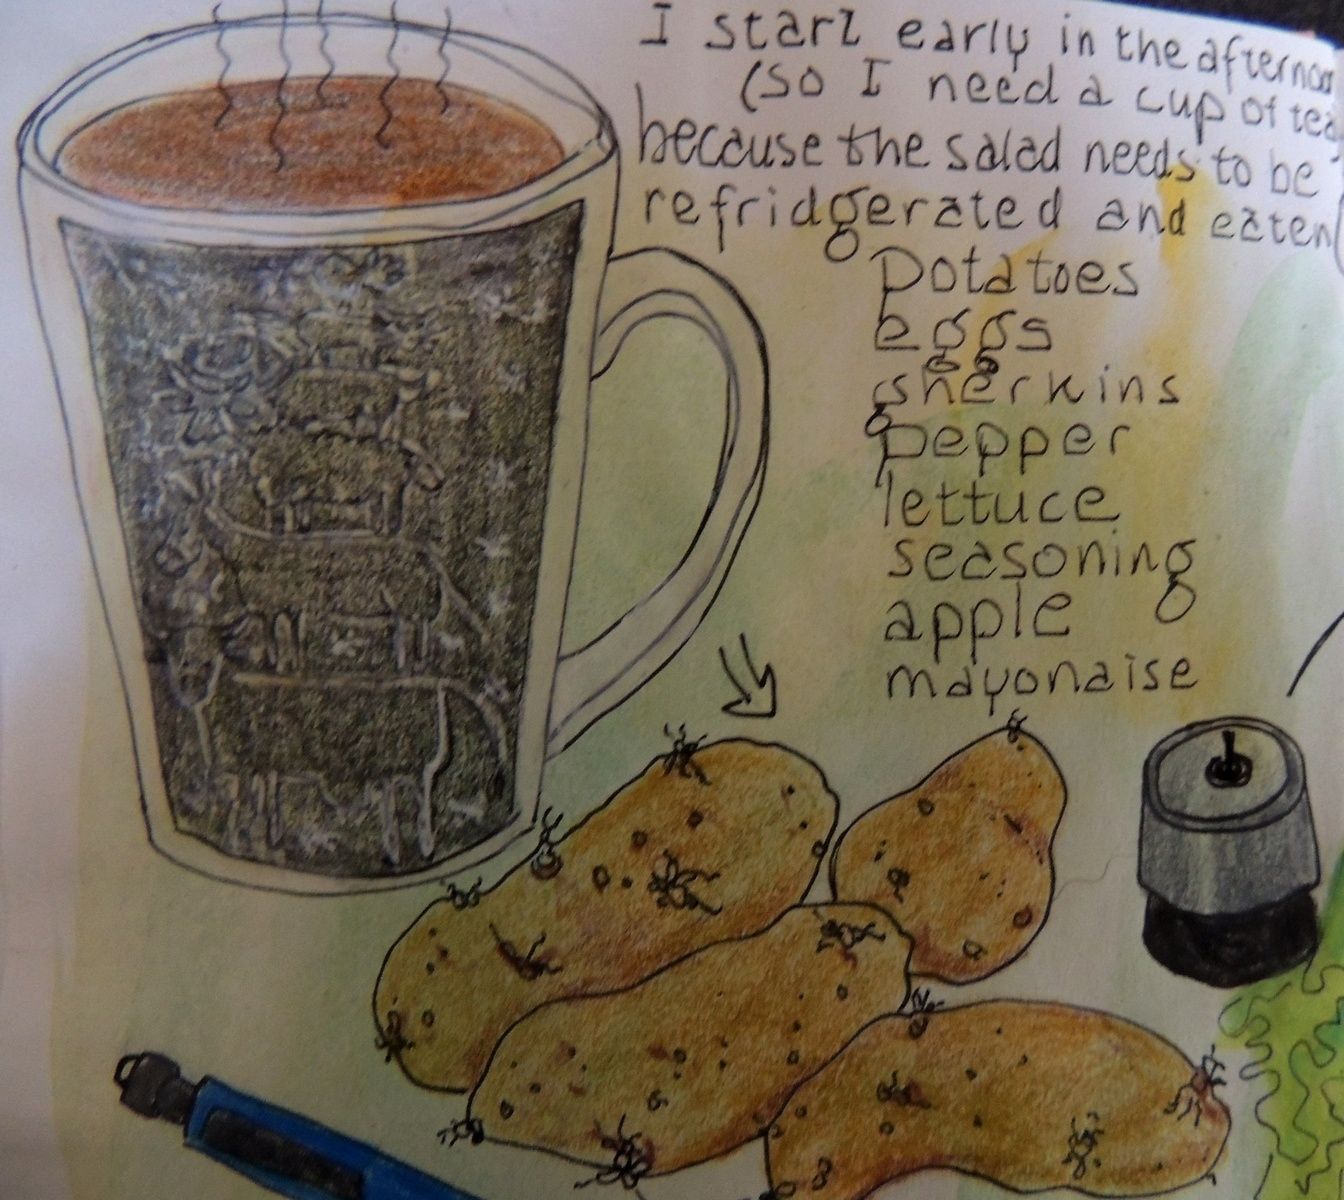 I start early in the afternoon
(so I need a cup of tea)
because the salad needs to be
refridgerated and eaten
potatoes
eggs
gherkins
pepper
lettuce
seasoning
apple
mayonaise